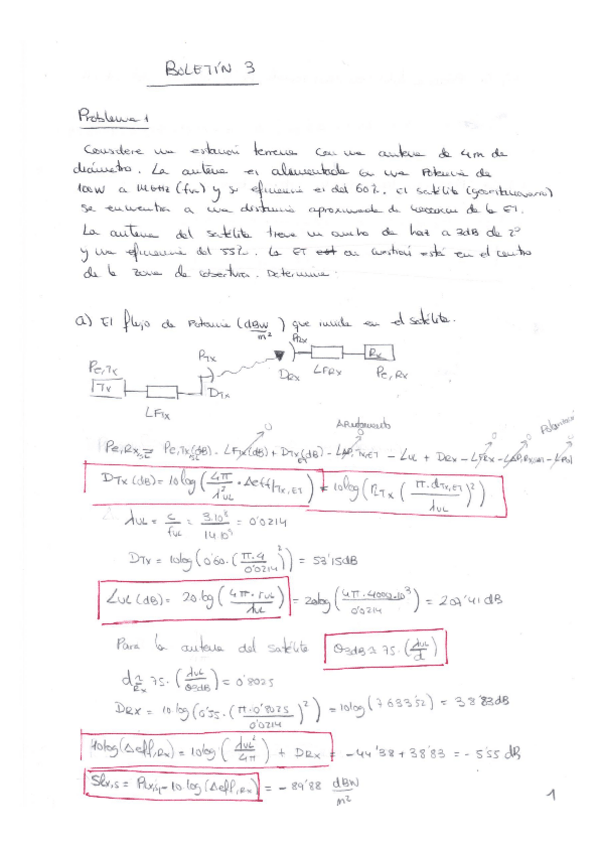 BOLETÍN 3
Problema 1
Considere una estación terrena con una antena de 4m de
diámetro. La antena es alimentada con una potencia de
100W a 14GHz (ful) y su eficiencia es del 60%. El satélite (geoestacionario)
se encuentra a una distancia aproximada de de la ET.
La antena del satélite tiene un ancho de haz a 3dB de 2º
y una eficiencia del 55%. La ET en cuestión está en el centro
de la zona de cobertura. Determine:
a) El flujo de potencia (dBW/m²) que incide en el satélite.
PTx
PRx
Pe,Tx
Tx
LFTx
DTx
DRx
LFRx
Rx
Pe,Rx
Apuntamiento
0 0 0 0 0
Pe,Rx = Pe,Tx(dB) - LFTx(dB) + DTx(dB) - LAP,TX,ET - LUL + DRx - LFRx
DTx (dB) = 10log(4π/λ²UL · Aeff|Tx,ET) = 10log(ηTx (π·dTx,ET/λUL)²)
λUL = c/fUL = 3·10⁸/14·10⁹ = 0'0214
DTx = 10log(0'60·(π·4/0'0214)²) = 53'15dB
LUL (dB) = 20log(4π·rUL/λUL) = 20log(4π·40000·10³/0'0214) = 207'41 dB
Para la antena del satélite θ3dB ≈ 75·(λUL/d)
dRx ≈ 75·(λUL/θ3dB) = 0'8025
DRx = 10log(0'55·(π·0'8025/0'0214)²) = 10log(7633'52) = 38'83dB
10log(Aeff,Rx) = 10log(λUL²/4π) + DRx = -44'38 + 38'83 = -5'55 dB
- 10log(Aeff,Rx) = -89'88 dBW/m²
1